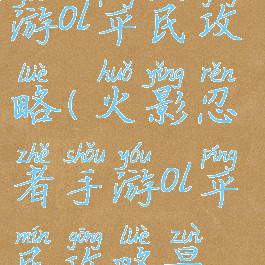 游ol平民攻
lüè huǒ yǐng rěn
略(火影忍
zhě shǒu yóu píng
者手游ol平
mín gōng lüè zuì
民攻略最